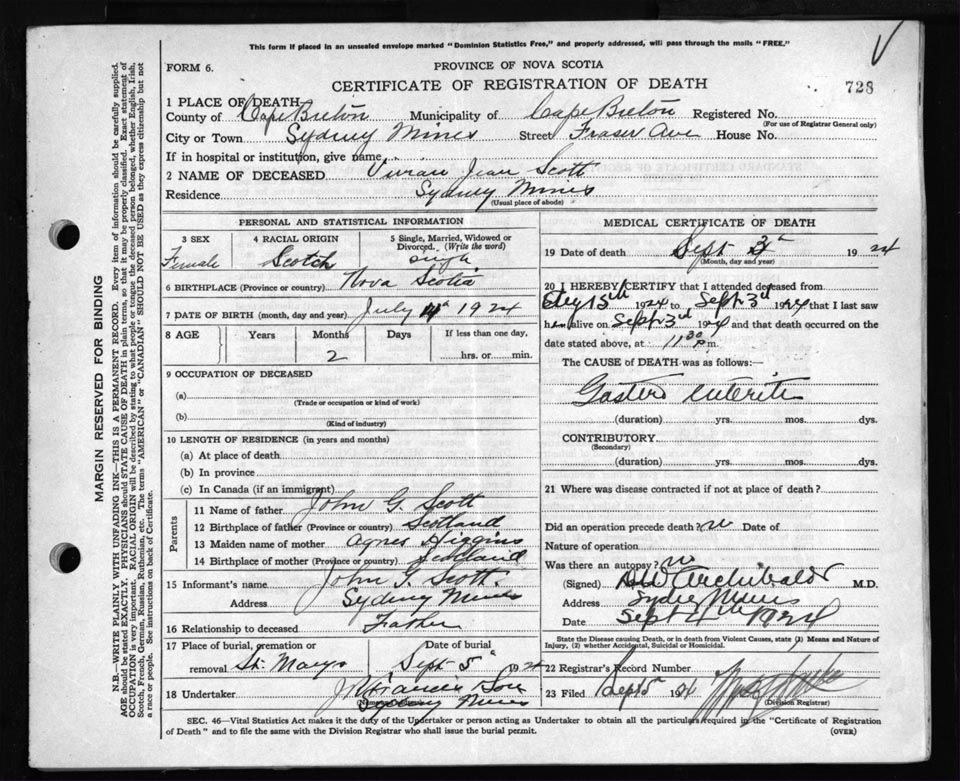 This form if placed in an unsealed envelope marked "Dominion Statistics Free," and properly addressed, will pass through the mails "FREE."
FORM 6.
PROVINCE OF NOVA SCOTIA
CERTIFICATE OF REGISTRATION OF DEATH
728
1 PLACE OF DEATH
County of Cape Breton Municipality of Cape Breton Registered No.
(For use of Registrar General only)
City or Town Sydney Mines Street Fraser Ave House No.
If in hospital or institution, give name
2 NAME OF DECEASED Vivian Jean Scott
Residence Sydney Mines
(Usual place of abode)
PERSONAL AND STATISTICAL INFORMATION
3 SEX 4 RACIAL ORIGIN 5 Single, Married, Widowed or Divorced. (Write the word)
Female Scotch single
6 BIRTHPLACE (Province or country) Nova Scotia
7 DATE OF BIRTH (month, day and year) July 4th 1924
8 AGE Years Months Days If less than one day,
2 hrs. or min.
9 OCCUPATION OF DECEASED
(a)
(Trade or occupation or kind of work)
(b)
(Kind of industry)
10 LENGTH OF RESIDENCE (in years and months)
(a) At place of death
(b) In province
(c) In Canada (if an immigrant)
Parents
11 Name of father John G. Scott
12 Birthplace of father (Province or country) Scotland
13 Maiden name of mother Agnes Higgins
14 Birthplace of mother (Province or country) Scotland
15 Informant's name John G. Scott.
Address Sydney Mines
16 Relationship to deceased Father
17 Place of burial, cremation or removal St. Marys
Date of burial Sept 5th 1924
18 Undertaker J R Francis Son
Sydney Mines
MEDICAL CERTIFICATE OF DEATH
19 Date of death Sept 3rd 1924
(Month, day and year)
20 I HEREBY CERTIFY that I attended deceased from
15th 1924 to Sept. 3rd 1924 that I last saw
h alive on Sept. 3rd 1924 and that death occurred on
date stated above, at 11 30 p.m.
The CAUSE of DEATH was as follows:—
Gastero enteritis
(duration) yrs. mos. dys.
CONTRIBUTORY
(Secondary)
(duration) yrs. mos. dys.
21 Where was disease contracted if not at place of death?
Did an operation precede death? no Date of
Nature of operation
Was there an autopsy? no
(Signed) Archibald M.D.
Address Sydney Mines
Date Sept 4th 1924
State the Disease causing Death, or in death from Violent Causes, state (1) Means and Nature of Injury, (2) whether Accidental, Suicidal or Homicidal.
22 Registrar's Record Number
23 Filed Sept 5th 1924
(Division Registrar)
SEC. 46—Vital Statistics Act makes it the duty of the Undertaker or person acting as Undertaker to obtain all the particulars required in the "Certificate of Registration
of Death" and to file the same with the Division Registrar who shall issue the burial permit.
(OVER)
MARGIN RESERVED FOR BINDING
N.B.—WRITE PLAINLY WITH UNFADING INK—THIS IS A PERMANENT RECORD. Every item of information should be carefully supplied.
AGE should be stated EXACTLY. PHYSICIANS should STATE CAUSE OF DEATH in plain terms, so that it may be properly classified. Exact statement of
OCCUPATION is very important. RACIAL ORIGIN will be described by stating to what people or tongue the deceased person belonged, whether English, Irish,
Scotch, French, German, Russian, Ruthenian, etc. The terms "AMERICAN" or "CANADIAN" SHOULD NOT BE USED as they express citizenship but not
a race or people. See instructions on back of Certificate.